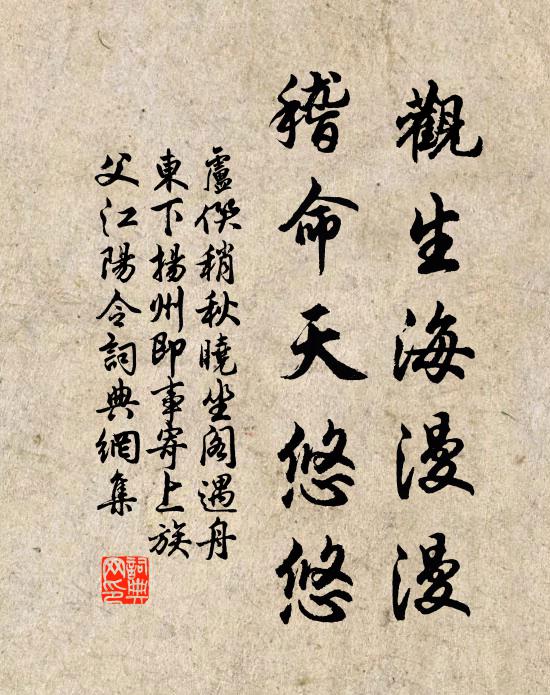 觀生海漫漫
稽命天悠悠
盧僎稍秋曉坐閣遇舟
東下揚州即事寄上族
父江陽令詞典網集
詞典
网印